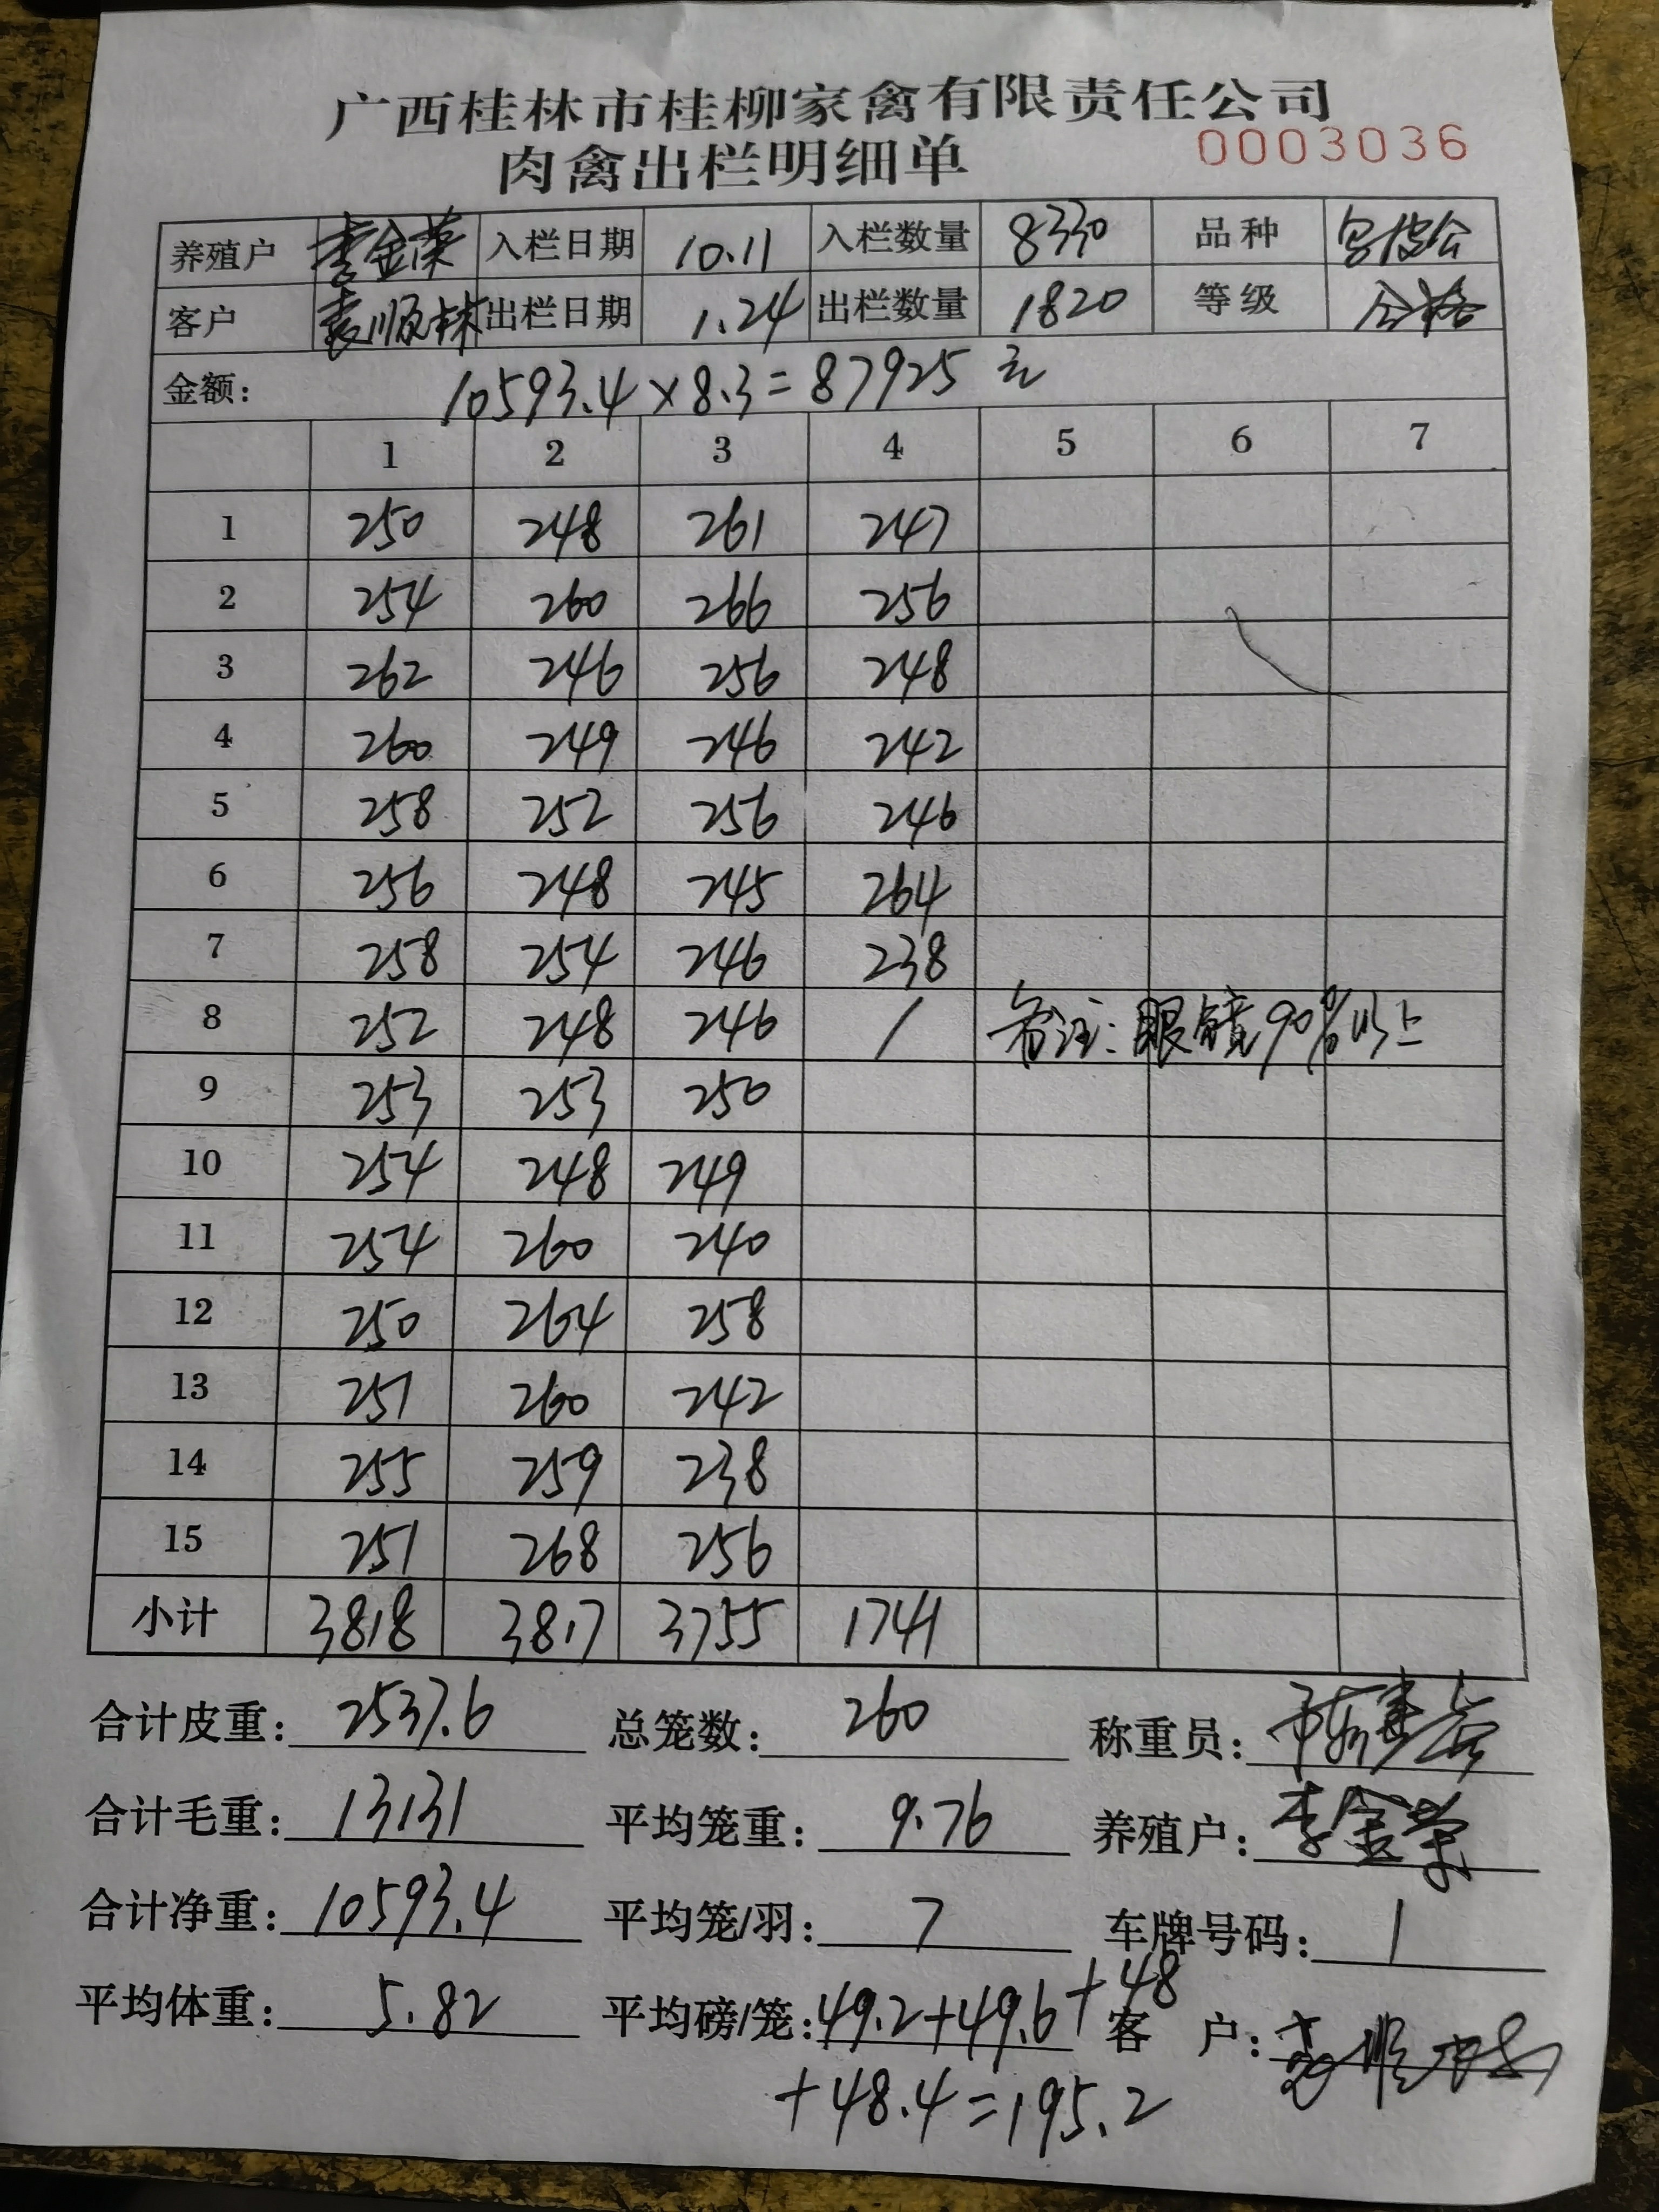 广西桂林市桂柳家禽有限责任公司
肉禽出栏明细单 0003036
养殖户 李金荣 入栏日期 10.11 入栏数量 8330 品种
客户 袁顺林 出栏日期 1.24 出栏数量 1820 等级 合格
金额: 10593.4×8.3=87925元
1 2 3 4 5 6 7
1 250 248 261 247
2 254 260 266 256
3 262 246 256 248
4 260 249 246 242
5 258 252 256 246
6 256 248 245 264
7 258 254 246 238
8 252 248 246 / 备注:眼镜90%以上
9 253 253 250
10 254 248 249
11 254 260 240
12 250 264 258
13 251 260 242
14 255 259 238
15 251 268 256
小计 3818 3817 3755 1741
合计皮重: 2537.6 总笼数: 260 称重员:
合计毛重: 13131 平均笼重: 9.76 养殖户: 李金荣
合计净重: 10593.4 平均笼/羽: 7 车牌号码: 1
平均体重: 5.82 平均磅/笼: 49.2+49.6+48 客 户: 袁顺林
+48.4=195.2